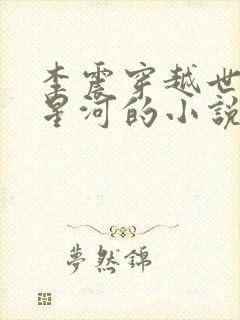 李震穿越世
星河的小說
夢然錦